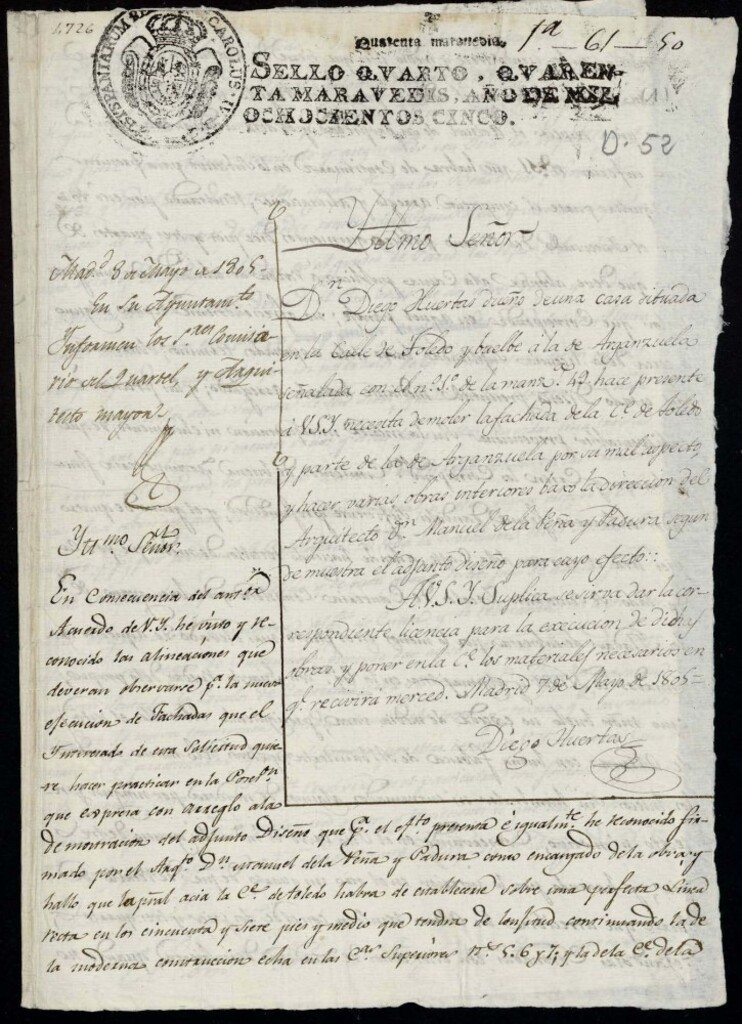 1726
HISPANIARUM REX CAROLUS IV D. G.
Quarenta maravedis.
1ª - 61 - 50
SELLO QVARTO, QVAREN-
TA MARAVEDIS, AÑO DE MIL
OCHOCIENTOS CINCO.
D. 52
Yltmo Señor
Dn. Diego Huertas dueño de una casa situada
en la Calle de Toledo y buelbe á la de Arjanzuela
señalada con el nº. 1º. de la manzª. 42, hace presente
á V.S.Y. necesita demoler la fachada de la Cª. de Toledo
y parte de la de Arjanzuela por su mal aspecto,
y hacer varias obras interiores baxo la direccion del
Arquitecto Dn. Manuel de la Peña y Padura segun
demuestra el adjunto diseño para cuyo efecto::
A V.S.Y. Suplica se sirva dar la cor-
respondiente licencia para la execucion de dichas
obras y poner en la Cª. los materiales necesarios en
qe. recivirá merced. Madrid 7 de Mayo de 1805=
Diego Huertas
Madd. 8 de Mayo de 1805-
En su Ayuntamto.
Ynformen los Sres. Comisa-
rio del Quartel, y Arqui-
tecto mayor.
Yltmo. Señor.
En Consecuencia del antor.
Acuerdo de V.Y. he visto y re-
conocido las alineaciónes que
deveran observarse pª. la nueva
ejecucion de Fachadas que el
Ynteresado de esta Solicitud quie-
re hacer practicar en la Poson.
que expresa con arreglo a la
demostracion del adjunto Diseño que pª. el efto. presenta é igualmte. he reconocido fir-
mado por el Arqto. Dn. Manuel de la Peña y Padura como encargado de la obra, y
hallo que la pral acia la Ce. de toledo habra de establecerse sobre una perfecta Linea
recta en los cincuenta y siete pies y medio que tendra de lonjitud continuando la de
la moderna construccion echa en las Cas. Superiores nos. 5. 6 y 7; y la de la Ce. de la